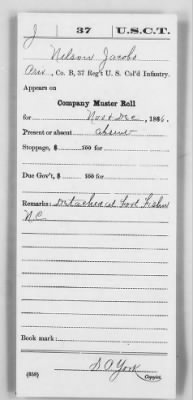 J 37 U.S.C.T.
Nelson Jacobs
Priv., Co. B, 37 Reg't U. S. Col'd Infantry.
Appears on
Company Muster Roll
for Nov & Dec, 1866.
Present or absent absent
Stoppage, $ 100 for
Due Gov't, $ 100 for
Remarks: Detached at Fort Fisher
N.C.
Book mark:
(858) Copyist.